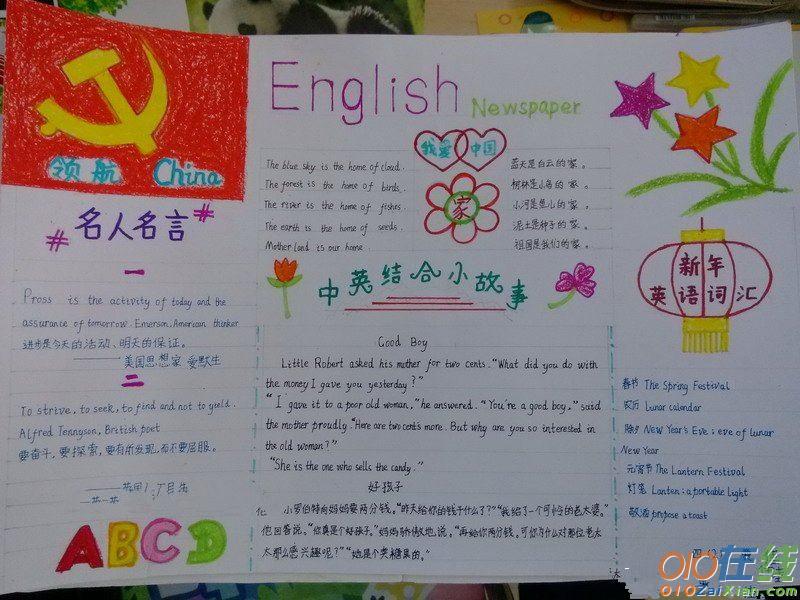 English Newspaper
领航 China
# 名人名言 #
一
Pross is the activity of today and the
assurance of tomorrow. Emerson, American thinker
进步是今天的活动、明天的保证。
——美国思想家 爱默生
二
To strive, to seek, to find and not to yield.
Alfred Jennyson, British poet
要奋斗，要探索，要有所发现，而不要屈服。
ABCD
我爱 中国
家
The blue sky is the home of cloud.
The forest is the home of birds.
The river is the home of fishes.
The earth is the home of seeds.
Mother land is our home.
蓝天是白云的家。
树林是小鸟的家。
小河是鱼儿的家。
泥土是种子的家。
祖国是我们的家。
中英结合小故事
Good Boy
Little Robert asked his mother for two cents. "What did you do with
the money I gave you yesterday?"
"I gave it to a poor old woman," he answered. "You're a good boy," said
the mother proudly. "Here are two cents more. But why are you so interested in
the old woman?"
"She is the one who sells the candy."
好孩子
小罗伯特向妈妈要两分钱。"昨天给你的钱干什么了？""我给了一个可怜的老太婆。"
他回答说。"你真是个好孩子。"妈妈骄傲地说。"再给你两分钱。可你为什么对那位老太
太那么感兴趣呢？""她是个卖糖果的。"
新年
英语词汇
春节 The Spring Festival
农历 Lunar calendar
除夕 New Year's Eve; eve of Lunar
New Year
元宵节 The Lantern Festival
灯笼 Lanten: a portable light
敬酒 propose a toast
010在线
010ZaiXian.com